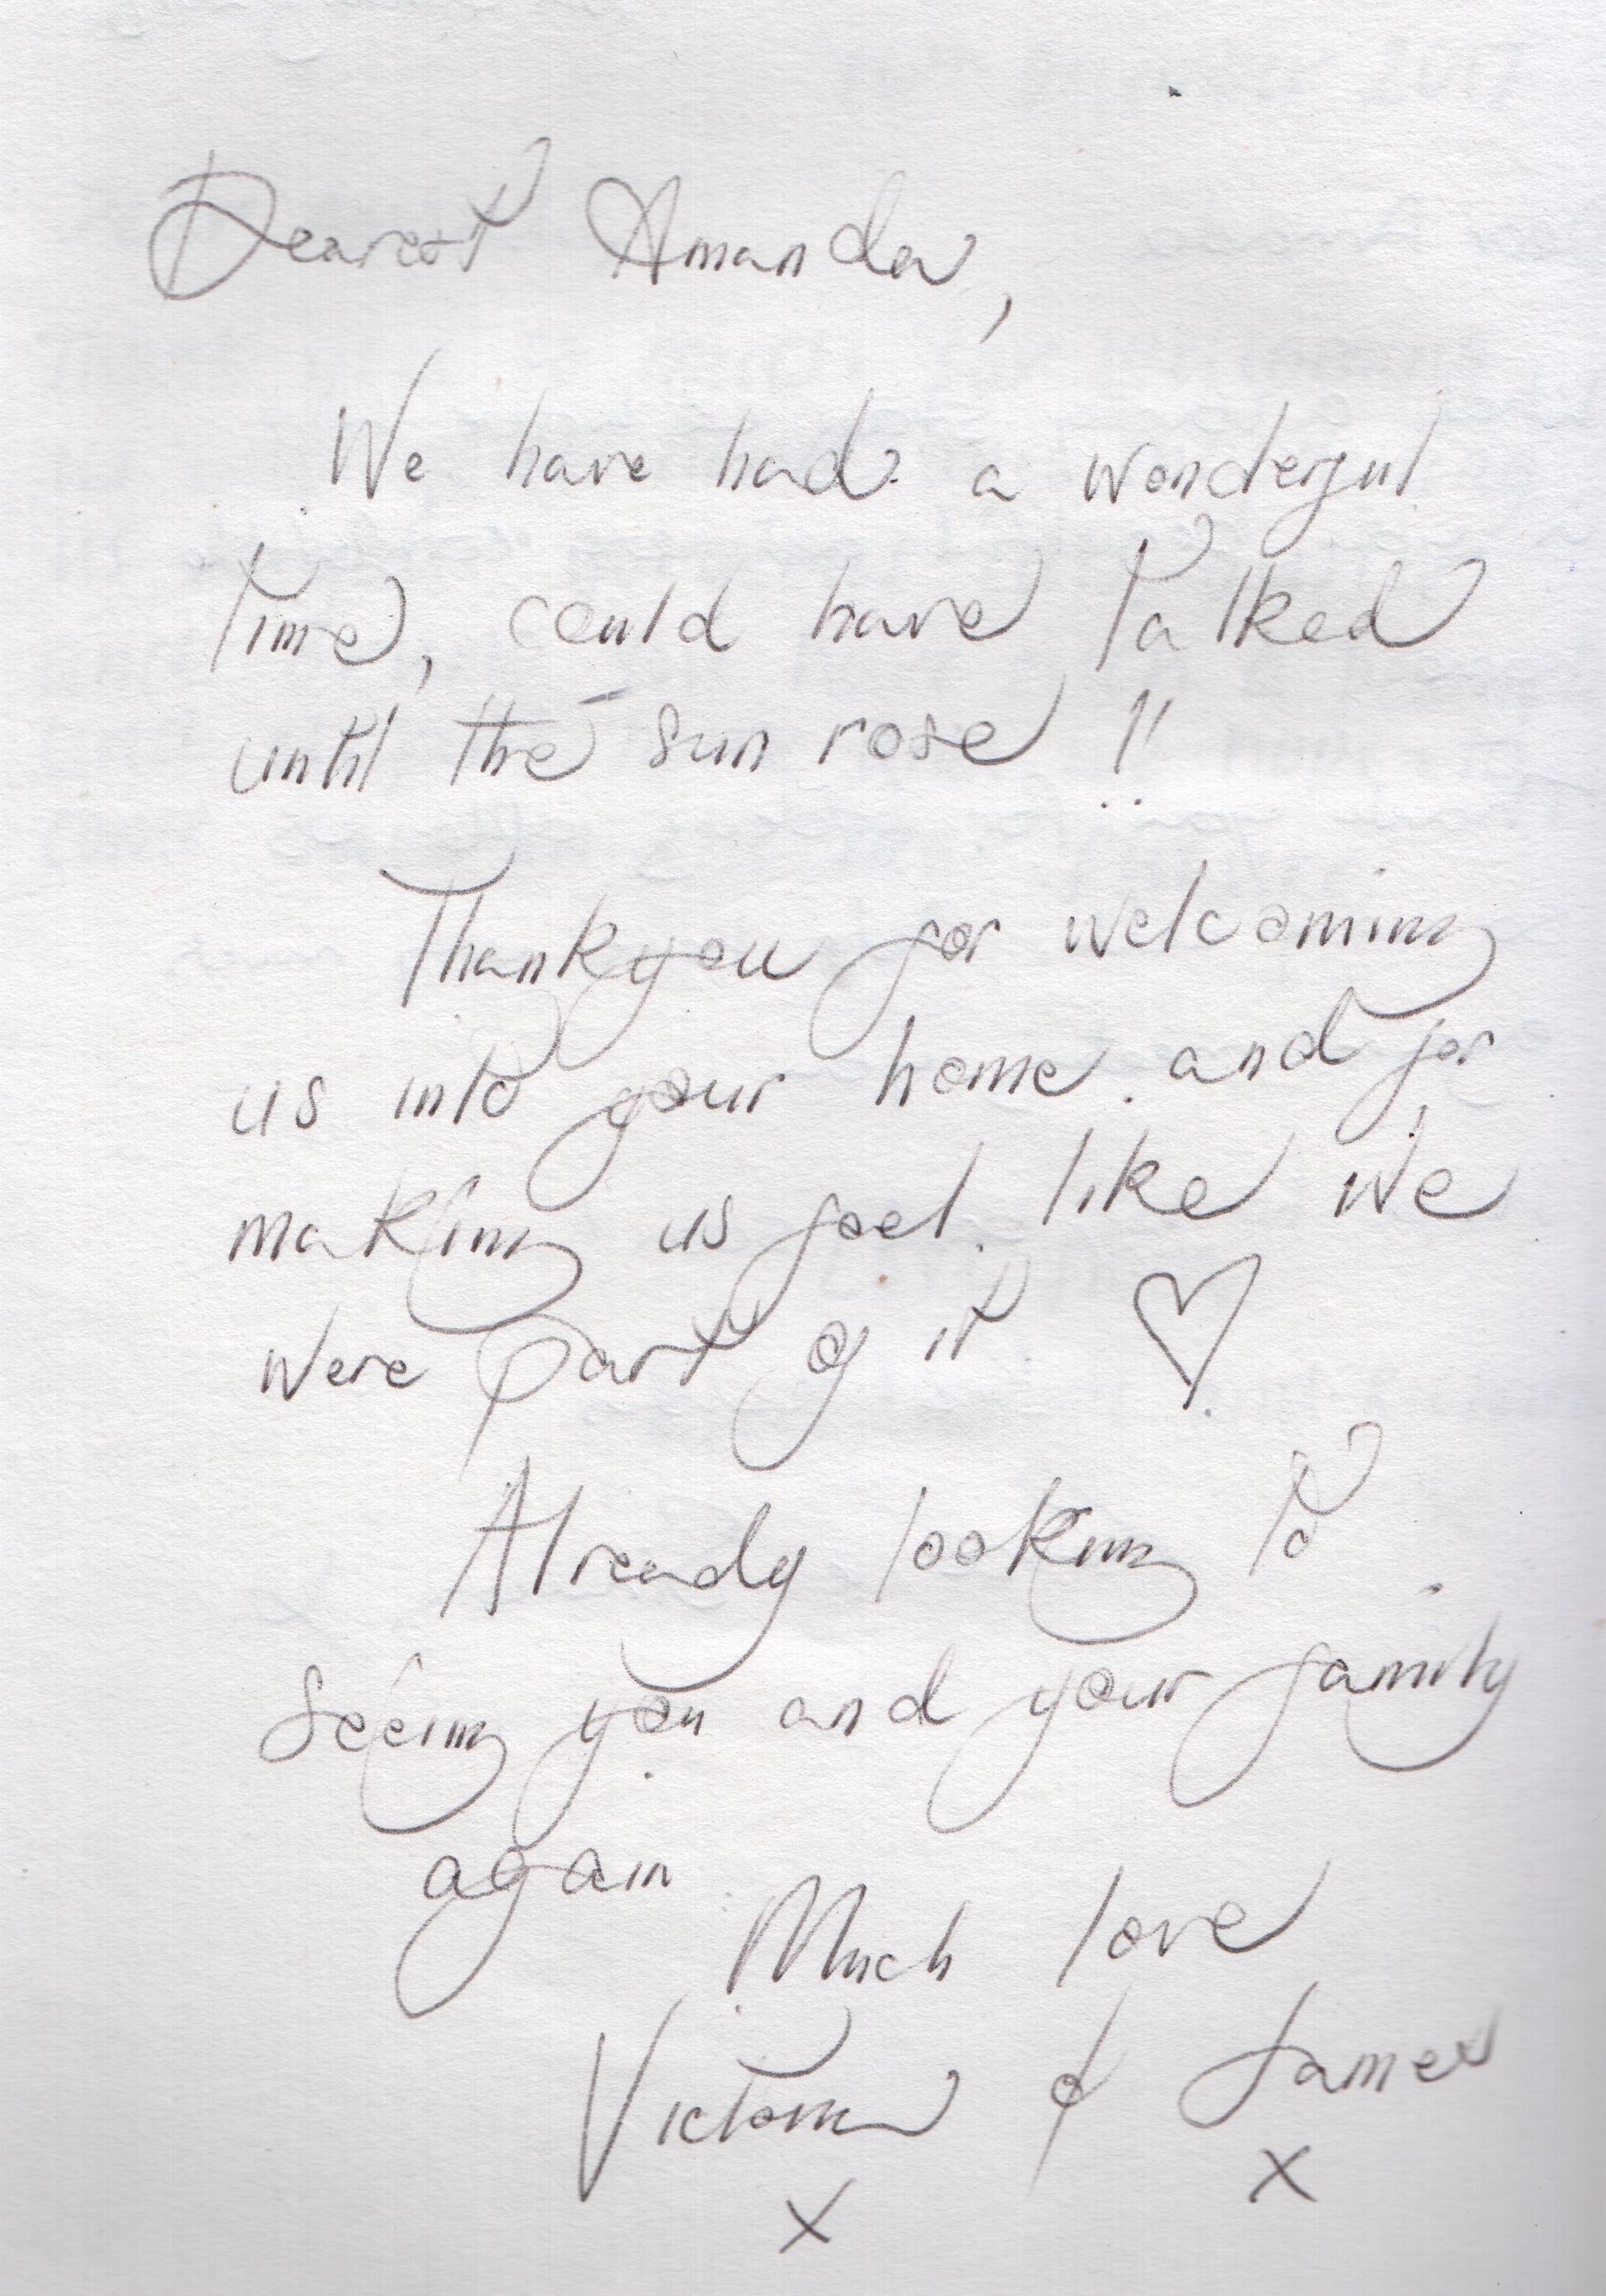 Dearest Amanda,
We have had a wonderful
time, could have talked
until the sun rose !!
Thankyou for welcoming
us into your home and for
making us feel like we
were part of it ♡
Already looking to
seeing you and your family
again
Much love
Victoria & James
x x